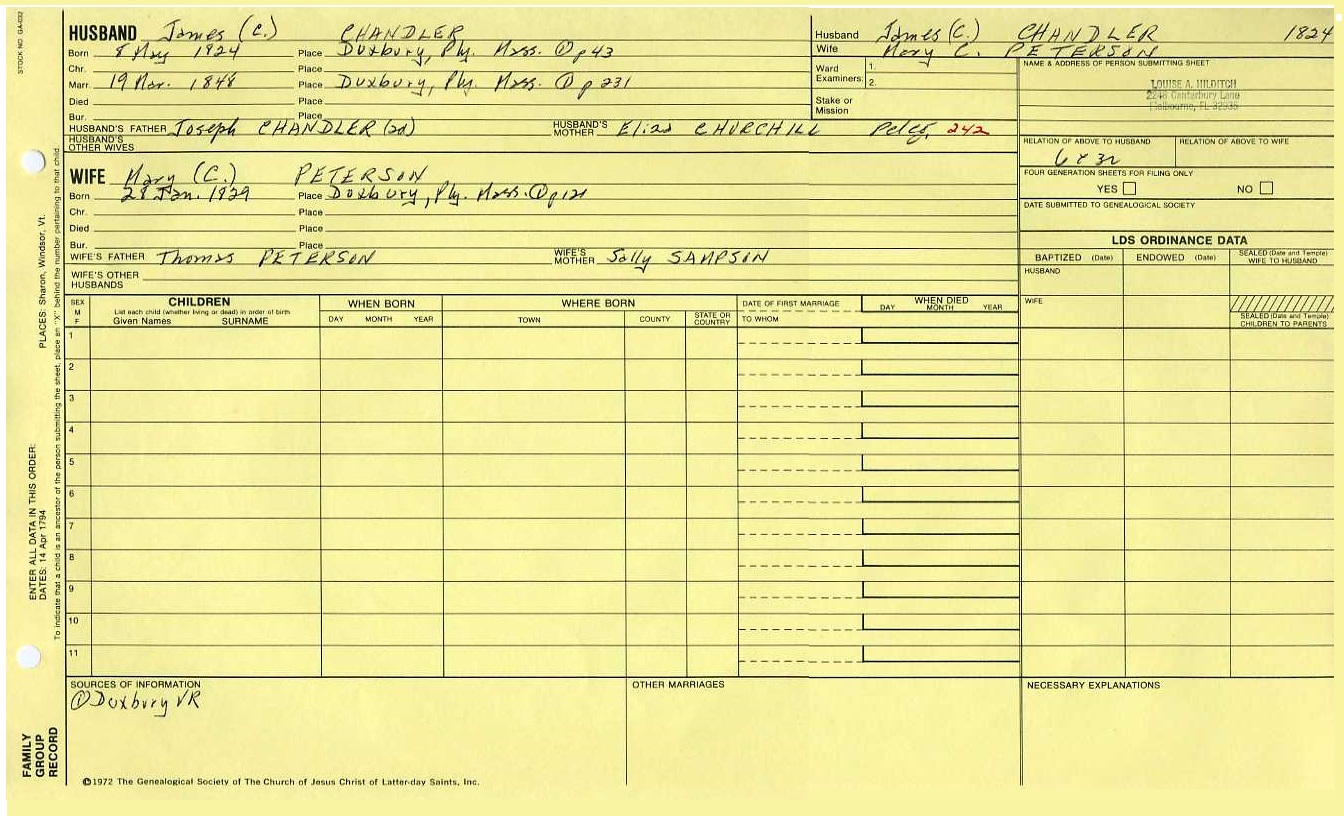 STOCK NO. GA-032
HUSBAND James (C.) CHANDLER
Born 8 May 1824 Place Duxbury, Ply. Mass. ① p 43
Chr. Place
Marr. 19 Mar. 1848 Place Duxbury, Ply. Mass. ① p 231
Died Place
Bur. Place
HUSBAND'S FATHER Joseph CHANDLER (2d) HUSBAND'S MOTHER Eliza CHURCHILL Peleg, 242
HUSBAND'S OTHER WIVES
WIFE Mary (C.) PETERSON
Born 28 Jan. 1829 Place Duxbury, Ply. Mass. ① p 121
Chr. Place
Died Place
Bur. Place
WIFE'S FATHER Thomas PETERSON WIFE'S MOTHER Sally SAMPSON
WIFE'S OTHER HUSBANDS
Husband James (C.) CHANDLER 1824
Wife Mary C. PETERSON
Ward Examiners: 1.
2.
Stake or Mission
NAME & ADDRESS OF PERSON SUBMITTING SHEET
LOUISE A. HILDITCH
2248 Canterbury Lane
Melbourne, FL 32935
RELATION OF ABOVE TO HUSBAND RELATION OF ABOVE TO WIFE
FOUR GENERATION SHEETS FOR FILING ONLY
YES NO
DATE SUBMITTED TO GENEALOGICAL SOCIETY
LDS ORDINANCE DATA
BAPTIZED (Date) ENDOWED (Date) SEALED (Date and Temple) WIFE TO HUSBAND
HUSBAND
WIFE
SEALED (Date and Temple) CHILDREN TO PARENTS
SEX M F
CHILDREN
List each child (whether living or dead) in order of birth
Given Names SURNAME
WHEN BORN
DAY MONTH YEAR
WHERE BORN
TOWN COUNTY STATE OR COUNTRY
DATE OF FIRST MARRIAGE
TO WHOM
WHEN DIED
DAY MONTH YEAR
1
2
3
4
5
6
7
8
9
10
11
SOURCES OF INFORMATION
① Duxbury VR
OTHER MARRIAGES
NECESSARY EXPLANATIONS
©1972 The Genealogical Society of The Church of Jesus Christ of Latter-day Saints, Inc.
FAMILY GROUP RECORD
ENTER ALL DATA IN THIS ORDER:
DATES: 14 Apr 1794 PLACES: Sharon, Windsor, Vt.
To indicate that a child is an ancestor of the person submitting the sheet, place an "X" behind the number pertaining to that child.